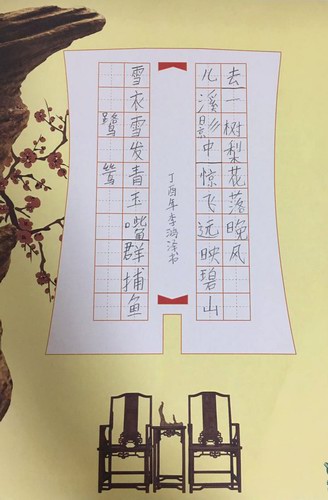 鹭鸶
雪衣雪发青玉嘴群捕鱼
儿溪影中惊飞远映碧山
去一树梨花落晚风
丁酉年李鸿涂书